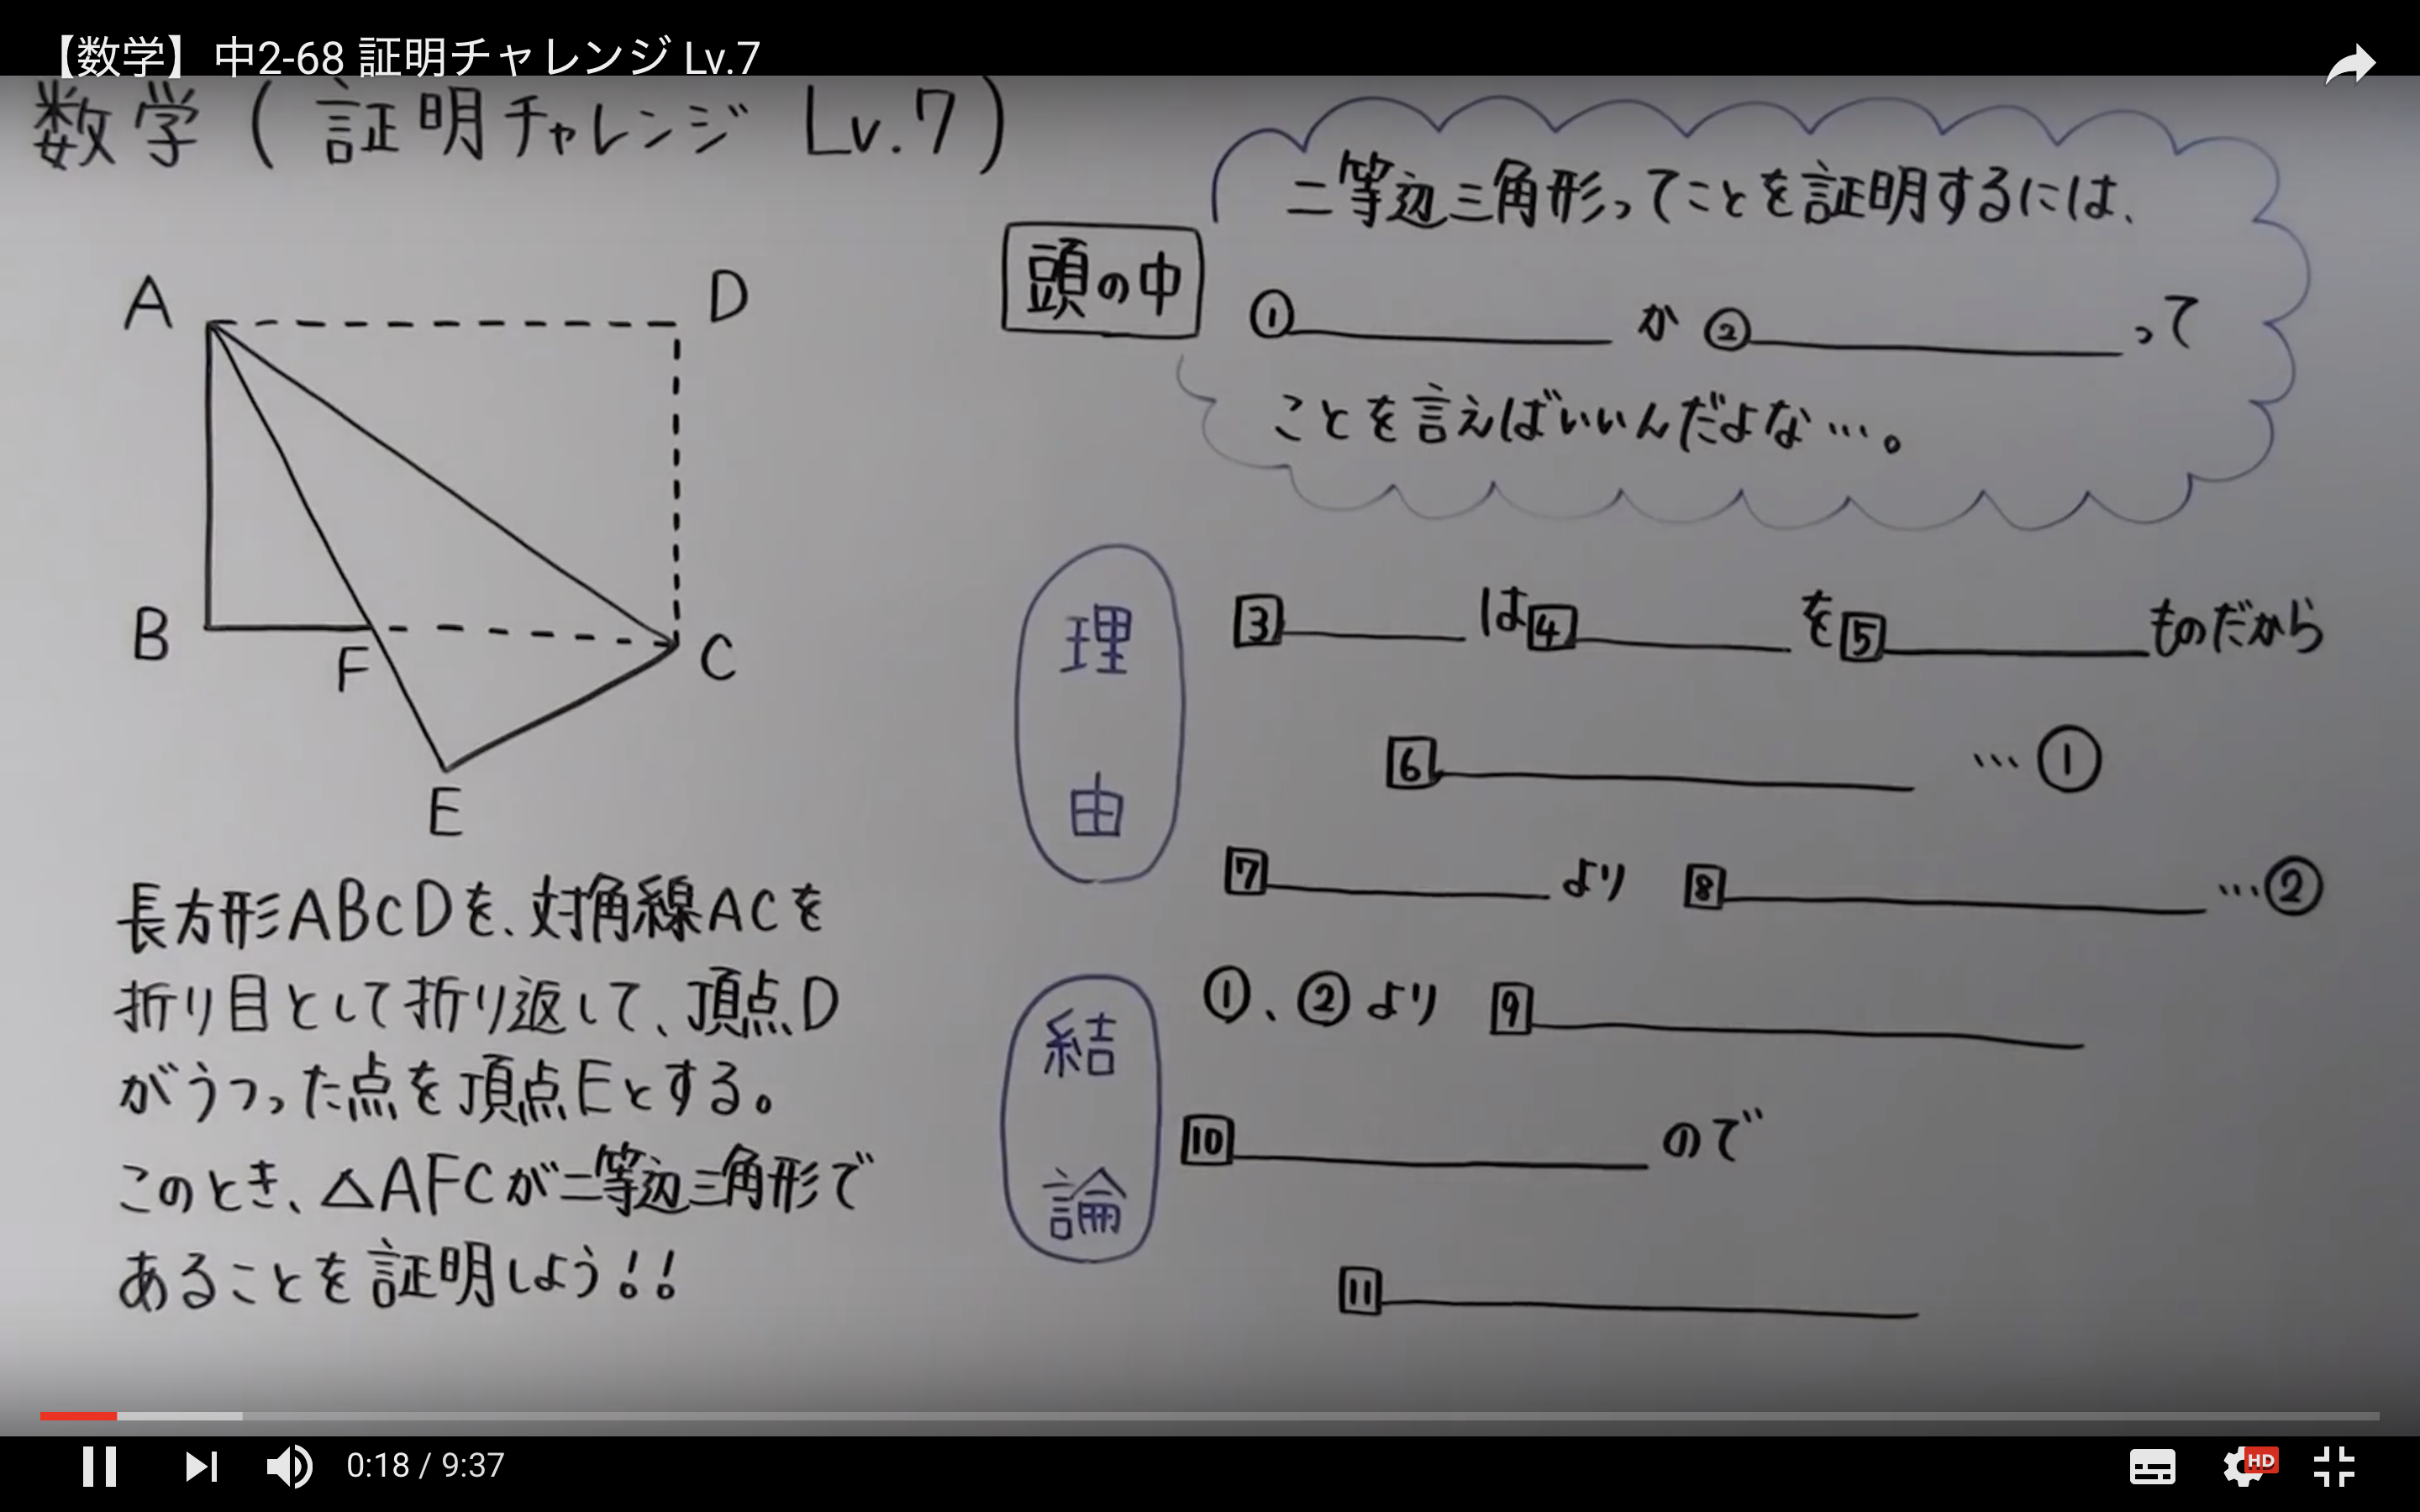 【数学】中2-68 証明チャレンジ Lv.7
数学 ( 証明チャレンジ Lv.7 )
A
D
B
F
C
E
長方形ABCDを、対角線ACを
折り目として折り返して、頂点D
がうつった点を頂点Eとする。
このとき、△AFCが二等辺三角形で
あることを証明しよう!!
頭の中
二等辺三角形ってことを証明するには、
① か ② って
ことを言えばいいんだよな…。
理由
3 は 4 を 5 ものだから
6 …①
7 より 8 …②
結論
①、②より 9
10 ので
11
0:18 / 9:37
HD